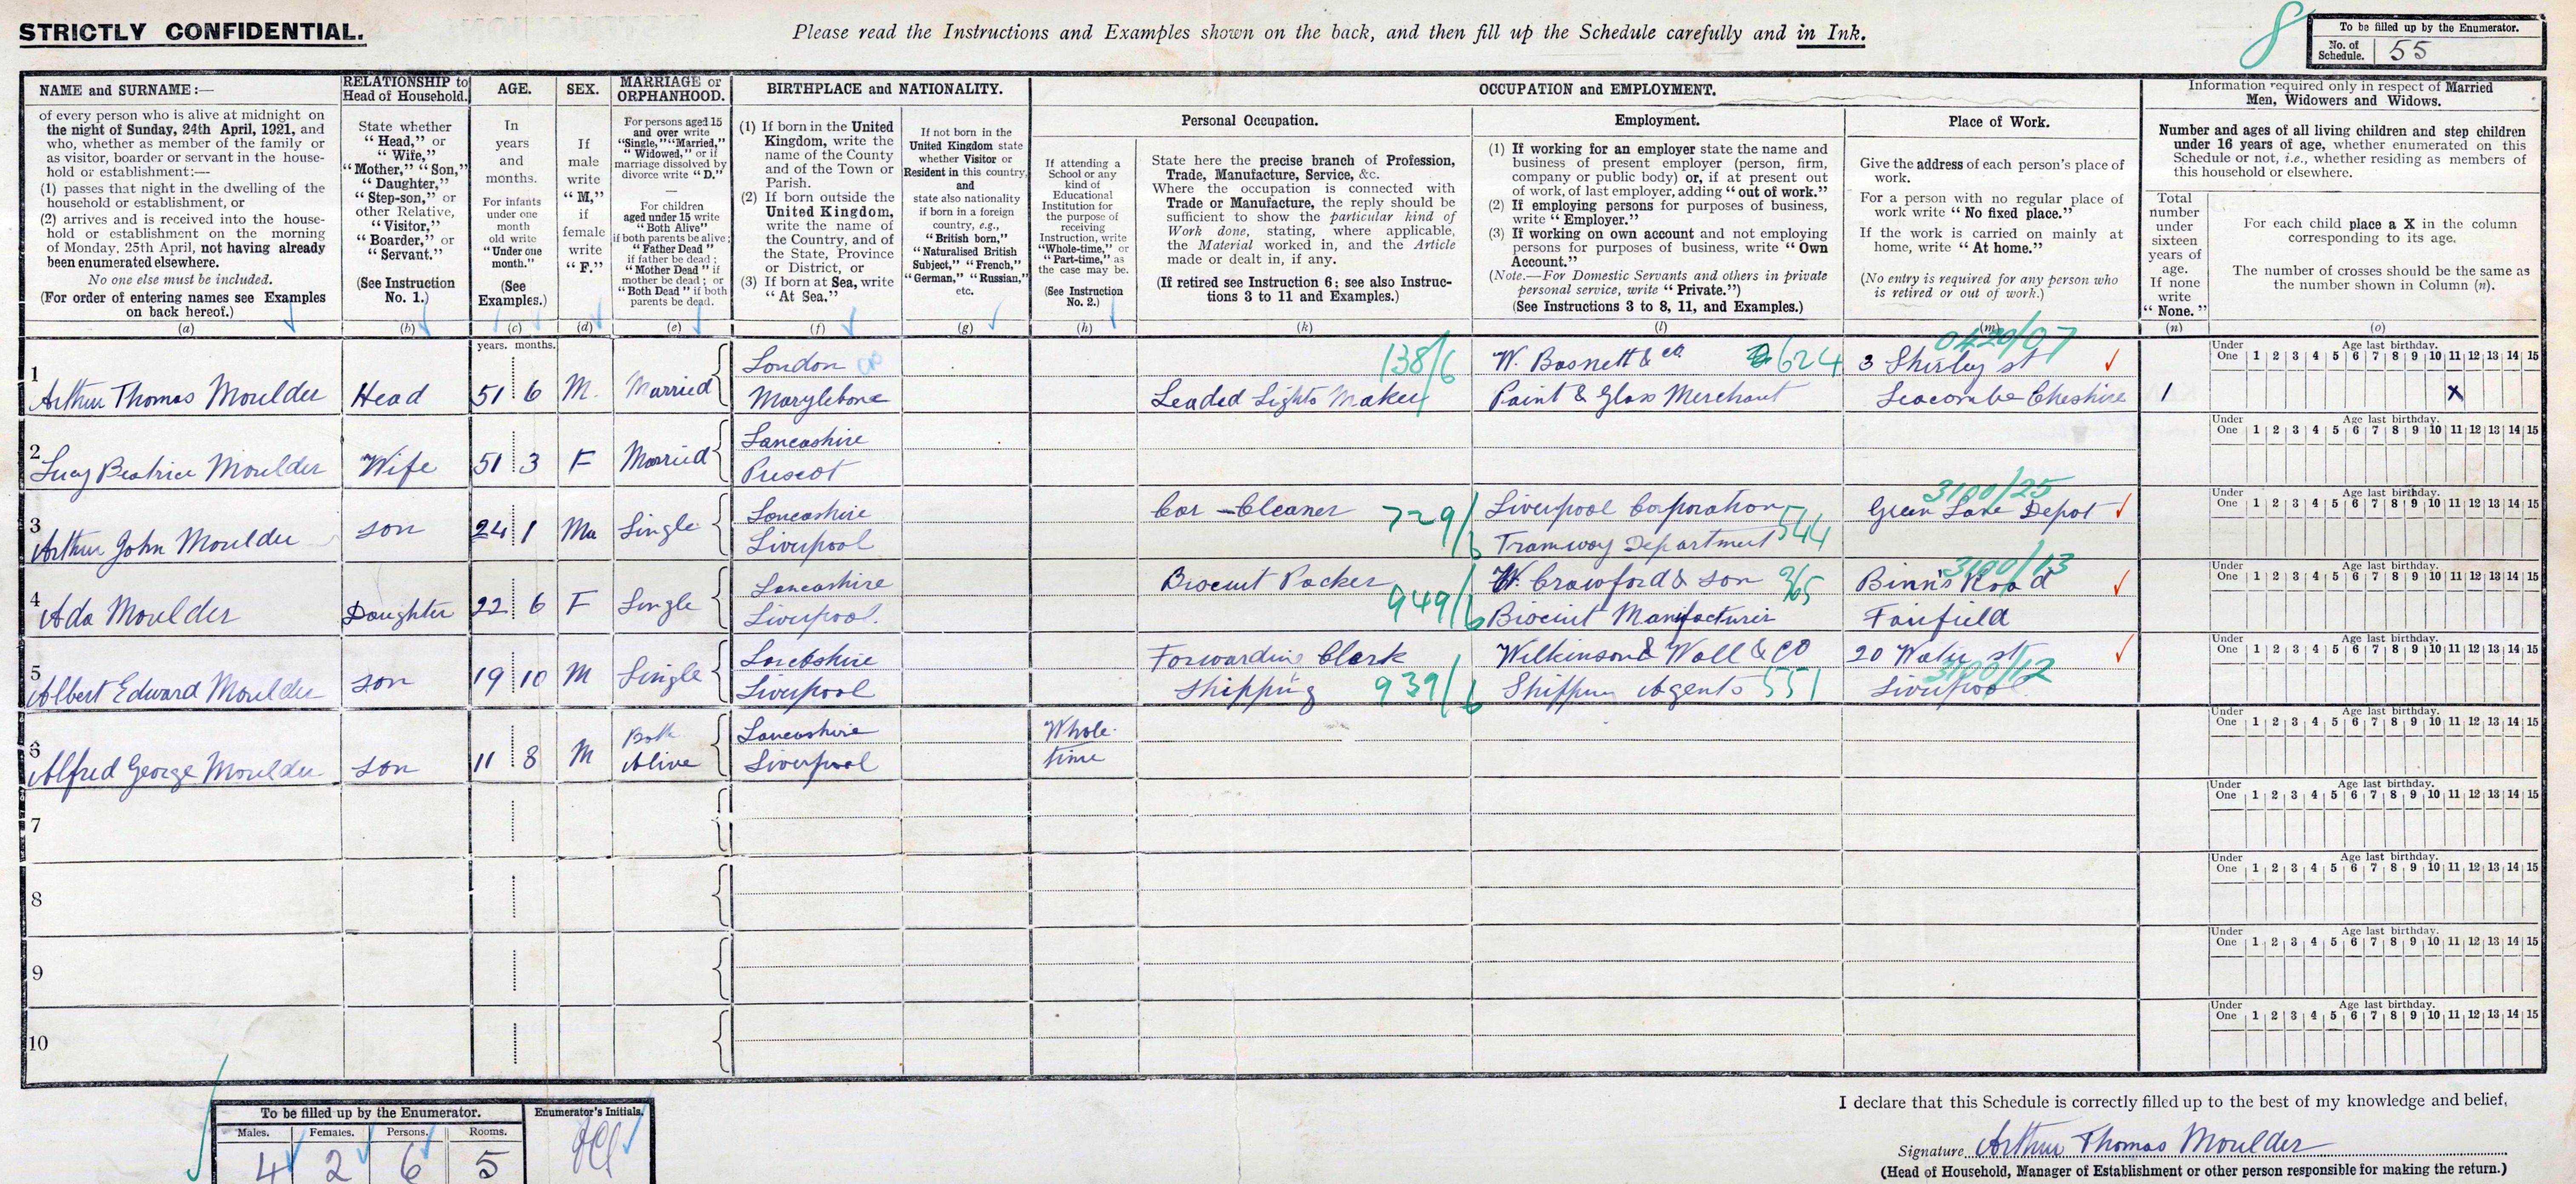 STRICTLY CONFIDENTIAL.
Please read the Instructions and Examples shown on the back, and then fill up the Schedule carefully and in Ink.
8
To be filled up by the Enumerator.
No. of Schedule. 55
NAME and SURNAME:—
of every person who is alive at midnight on
the night of Sunday, 24th April, 1921, and
who, whether as member of the family or
as visitor, boarder or servant in the house-
hold or establishment:—
(1) passes that night in the dwelling of the
household or establishment, or
(2) arrives and is received into the house-
hold or establishment on the morning
of Monday, 25th April, not having already
been enumerated elsewhere.
No one else must be included.
(For order of entering names see Examples
on back hereof.)
(a)
RELATIONSHIP to
Head of Household.
State whether
"Head," or
"Wife,"
"Mother," "Son,"
"Daughter,"
"Step-son," or
other Relative,
"Visitor,"
"Boarder," or
"Servant."
(See Instruction
No. 1.)
(b)
AGE.
In
years
and
months.
For infants
under one
month
old write
"Under one
month."
(See
Examples.)
(c)
SEX.
If
male
write
"M,"
if
female
write
"F."
(d)
MARRIAGE or
ORPHANHOOD.
For persons aged 15
and over write
"Single," "Married,"
"Widowed," or if
marriage dissolved by
divorce write "D."
—
For children
aged under 15 write
"Both Alive"
if both parents be alive;
"Father Dead"
if father be dead;
"Mother Dead" if
mother be dead; or
"Both Dead" if both
parents be dead.
(e)
BIRTHPLACE and NATIONALITY.
(1) If born in the United
Kingdom, write the
name of the County
and of the Town or
Parish.
(2) If born outside the
United Kingdom,
write the name of
the Country, and of
the State, Province
or District, or
(3) If born at Sea, write
"At Sea."
(f)
If not born in the
United Kingdom state
whether Visitor or
Resident in this country,
and
state also nationality
if born in a foreign
country, e.g.,
"British born,"
"Naturalised British
Subject," "French,"
"German," "Russian,"
etc.
(g)
OCCUPATION and EMPLOYMENT.
If attending a
School or any
kind of
Educational
Institution for
the purpose of
receiving
Instruction, write
"Whole-time," or
"Part-time," as
the case may be.
(See Instruction
No. 2.)
(h)
Personal Occupation.
State here the precise branch of Profession,
Trade, Manufacture, Service, &c.
Where the occupation is connected with
Trade or Manufacture, the reply should be
sufficient to show the particular kind of
Work done, stating, where applicable,
the Material worked in, and the Article
made or dealt in, if any.
(If retired see Instruction 6; see also Instruc-
tions 3 to 11 and Examples.)
(k)
Employment.
(1) If working for an employer state the name and
business of present employer (person, firm,
company or public body) or, if at present out
of work, of last employer, adding "out of work."
(2) If employing persons for purposes of business,
write "Employer."
(3) If working on own account and not employing
persons for purposes of business, write "Own
Account."
(Note.—For Domestic Servants and others in private
personal service, write "Private.")
(See Instructions 3 to 8, 11, and Examples.)
(l)
Place of Work.
Give the address of each person's place of
work.
For a person with no regular place of
work write "No fixed place."
If the work is carried on mainly at
home, write "At home."
(No entry is required for any person who
is retired or out of work.)
(m)
Information required only in respect of Married
Men, Widowers and Widows.
Number and ages of all living children and step children
under 16 years of age, whether enumerated on this
Schedule or not, i.e., whether residing as members of
this household or elsewhere.
Total
number
under
sixteen
years of
age.
If none
write
"None."
(n)
For each child place a X in the column
corresponding to its age.
The number of crosses should be the same as
the number shown in Column (n).
(o)
years. months.
London
138/6
W. Basnett & Co 624
3 Shirley st
Under One Age last birthday. 1 2 3 4 5 6 7 8 9 10 11 12 13 14 15
1 Arthur Thomas Moulder Head 51 6 M. Married Marylebone Leaded Lights Maker Paint & Glass Merchant Seacombe Cheshire 1 X
Lancashire
Under One Age last birthday. 1 2 3 4 5 6 7 8 9 10 11 12 13 14 15
2 Lucy Beatrice Moulder Wife 51 3 F Married Prescot
3100/25
Lancashire Car-Cleaner 729/6 Liverpool Corporation Green Lane Depot
Under One Age last birthday. 1 2 3 4 5 6 7 8 9 10 11 12 13 14 15
3 Arthur John Moulder Son 24 1 Ma Single Liverpool Tramway Department 544
3100/13
Lancashire Biscuit Packer W. Crawford & Son 365 Binn's Road
Under One Age last birthday. 1 2 3 4 5 6 7 8 9 10 11 12 13 14 15
4 Ada Moulder Daughter 22 6 F Single Liverpool. 949/6 Biscuit Manufacturer Fairfield
Lancashire Forwarding Clerk Wilkinson & Wall & Co 20 Water st
Under One Age last birthday. 1 2 3 4 5 6 7 8 9 10 11 12 13 14 15
3100/12
5 Albert Edward Moulder Son 19 10 M Single Liverpool Shipping 939/6 Shipping Agents 551 Liverpool
Both Lancashire Whole-
Under One Age last birthday. 1 2 3 4 5 6 7 8 9 10 11 12 13 14 15
6 Alfred George Moulder Son 11 8 M Alive Liverpool time
Under One Age last birthday. 1 2 3 4 5 6 7 8 9 10 11 12 13 14 15
7
Under One Age last birthday. 1 2 3 4 5 6 7 8 9 10 11 12 13 14 15
8
Under One Age last birthday. 1 2 3 4 5 6 7 8 9 10 11 12 13 14 15
9
Under One Age last birthday. 1 2 3 4 5 6 7 8 9 10 11 12 13 14 15
10
To be filled up by the Enumerator.
Enumerator's Initials.
Males. Females. Persons. Rooms.
4 2 6 5
I declare that this Schedule is correctly filled up to the best of my knowledge and belief,
Signature Arthur Thomas Moulder
(Head of Household, Manager of Establishment or other person responsible for making the return.)